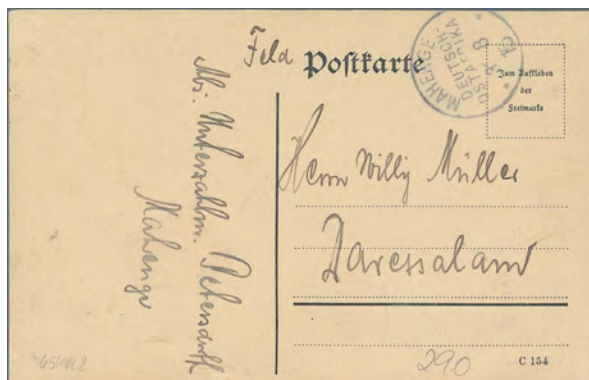 Feld Postkarte
MAHENGE
DEUTSCH-
OSTAFRIKA
8
Zum Aufkleben
der
Freimarke
Herrn Willy Müller
Daressalam
C 154
290
Abs. Unterzahlm. Petersdorff
Mahenge